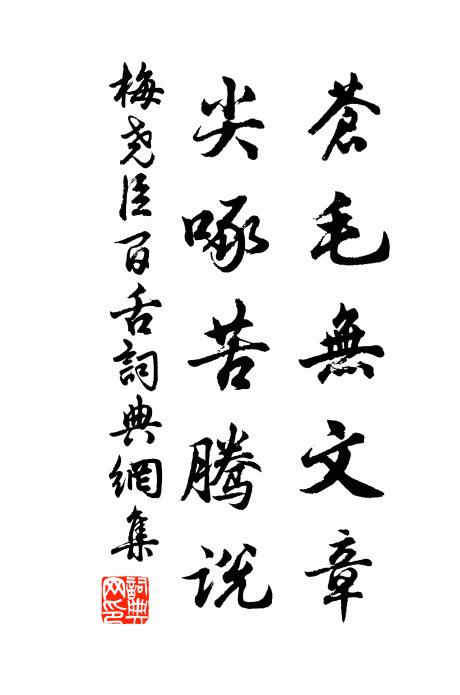 蒼毛無文章
尖啄苦騰說
梅尧臣百舌詞典網集
詞典网印